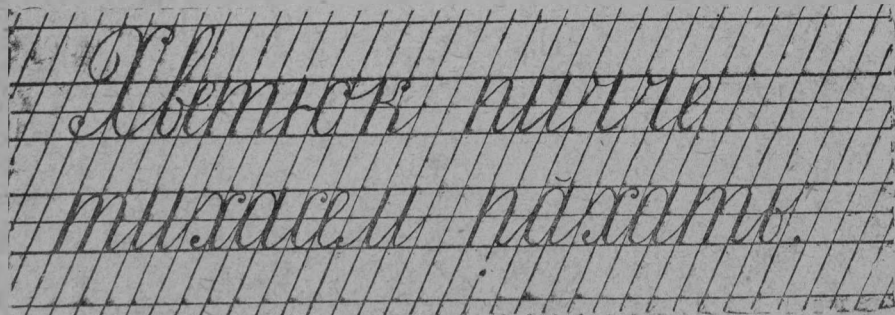 Хветюк пичче
тихасем пӑхать.